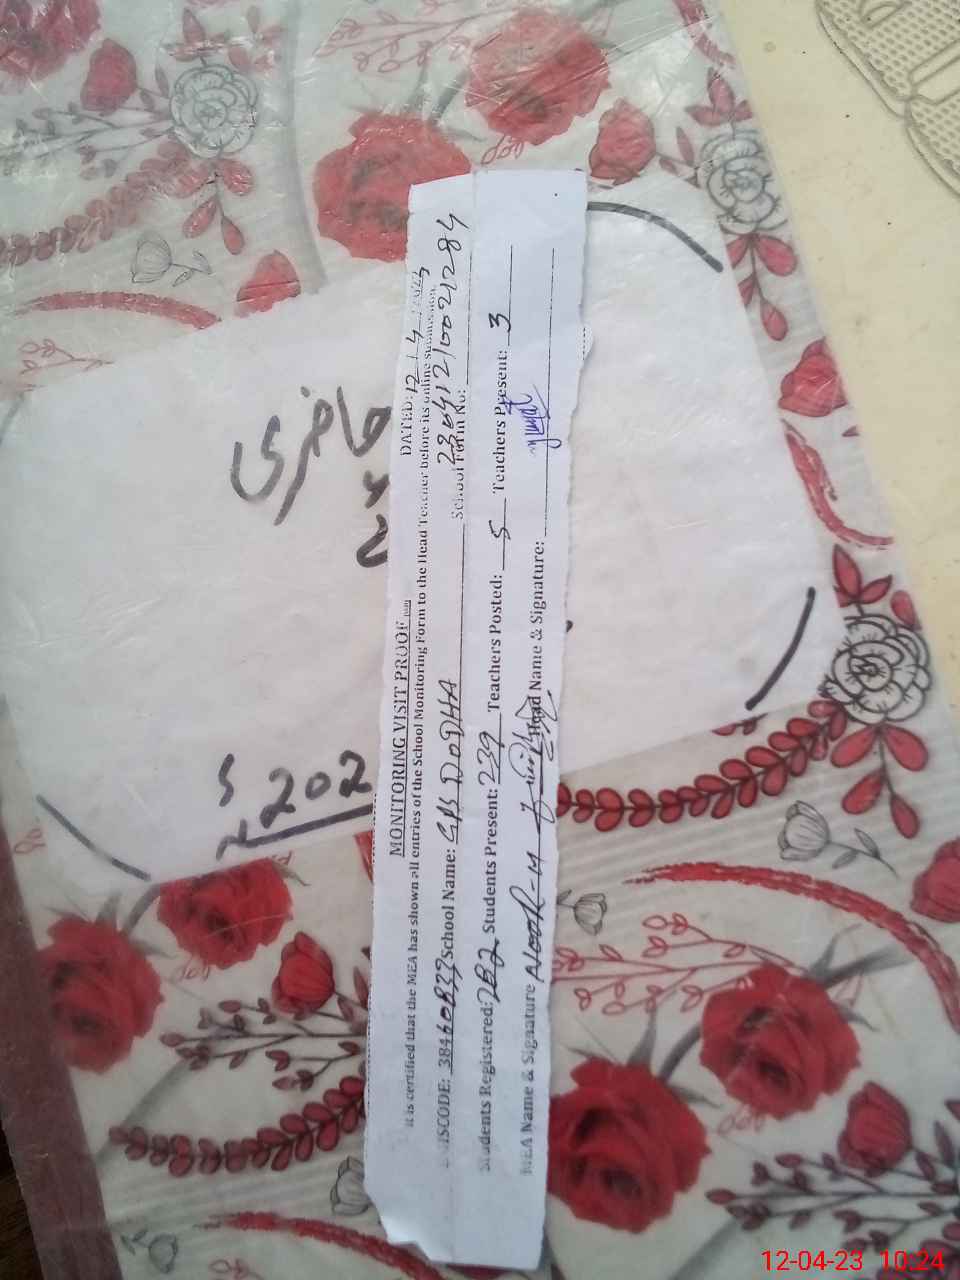 MONITORING VISIT PROOF
DATED: 12/4/2023
It is certified that the MEA has shown all entries of the School Monitoring Form to the Head Teacher before its online submission.
School Name: GPS DODHA School Form No: 23041210021284
Students Registered: 282 Students Present: 239 Teachers Posted: 5 Teachers Present: 3
MEA Name & Signature Head Name & Signature:
حاضری
202
12-04-23 10:24